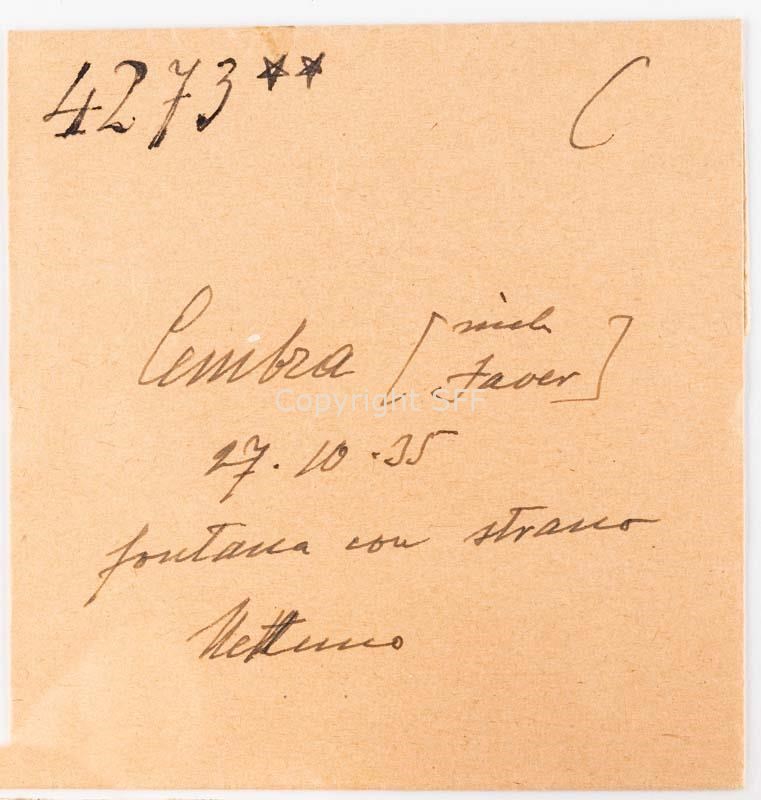 4273** C
Cembra [nicht
Faver]
Copyright SFF
27.10.35
fontana con strano
Nettuno